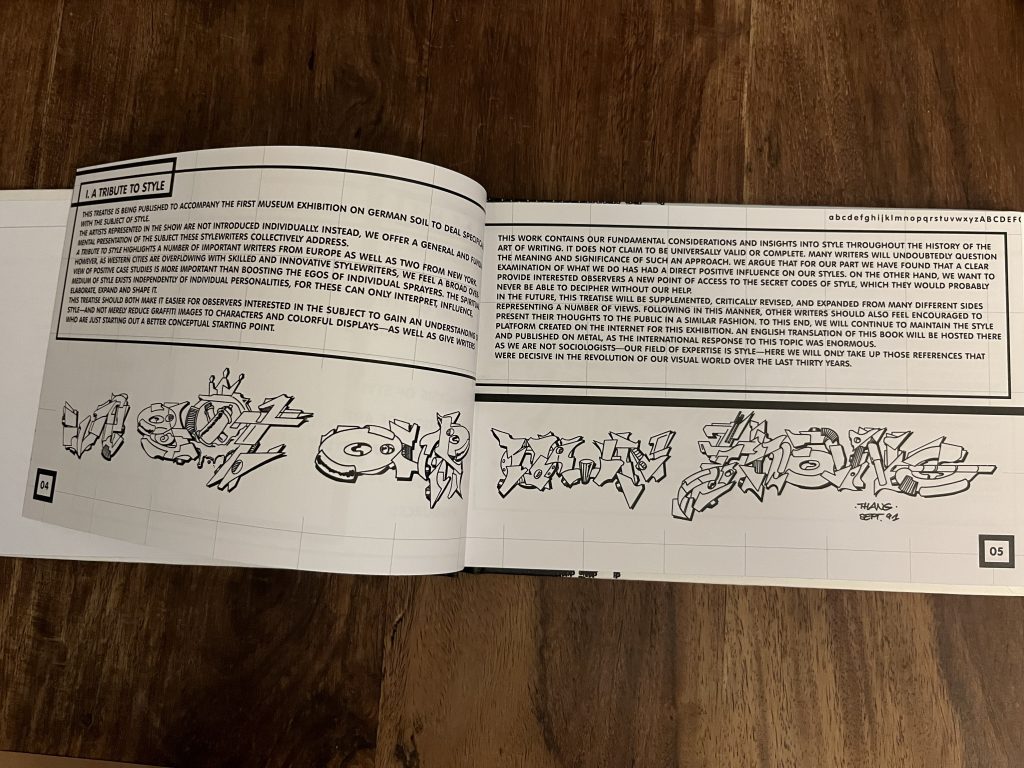 I. A TRIBUTE TO STYLE
THIS TREATISE IS BEING PUBLISHED TO ACCOMPANY THE FIRST MUSEUM EXHIBITION ON GERMAN SOIL TO DEAL
WITH THE SUBJECT OF STYLE.
THE ARTISTS REPRESENTED IN THE SHOW ARE NOT INTRODUCED INDIVIDUALLY. INSTEAD, WE OFFER A GENERAL AND
MENTAL PRESENTATION OF THE SUBJECT THESE STYLEWRITERS COLLECTIVELY ADDRESS.
A TRIBUTE TO STYLE HIGHLIGHTS A NUMBER OF IMPORTANT WRITERS FROM EUROPE AS WELL AS TWO FROM NEW YORK.
HOWEVER, AS WESTERN CITIES ARE OVERFLOWING WITH SKILLED AND INNOVATIVE STYLEWRITERS, WE FEEL A BROAD
VIEW OF POSITIVE CASE STUDIES IS MORE IMPORTANT THAN BOOSTING THE EGOS OF INDIVIDUAL SPRAYERS. THE
MEDIUM OF STYLE EXISTS INDEPENDENTLY OF INDIVIDUAL PERSONALITIES, FOR THESE CAN ONLY INTERPRET, INFLUENCE,
ELABORATE, EXPAND AND SHAPE IT.
THIS TREATISE SHOULD BOTH MAKE IT EASIER FOR OBSERVERS INTERESTED IN THE SUBJECT TO GAIN AN UNDERSTANDING
STYLE—AND NOT MERELY REDUCE GRAFFITI IMAGES TO CHARACTERS AND COLORFUL DISPLAYS—AS WELL AS GIVE WRITERS
WHO ARE JUST STARTING OUT A BETTER CONCEPTUAL STARTING POINT.
04
abcdefghijklmnopqrstuvwxyzABCDEF
THIS WORK CONTAINS OUR FUNDAMENTAL CONSIDERATIONS AND INSIGHTS INTO STYLE THROUGHOUT THE HISTORY OF THE
ART OF WRITING. IT DOES NOT CLAIM TO BE UNIVERSALLY VALID OR COMPLETE. MANY WRITERS WILL UNDOUBTEDLY QUESTION
THE MEANING AND SIGNIFICANCE OF SUCH AN APPROACH. WE ARGUE THAT FOR OUR PART WE HAVE FOUND THAT A CLEAR
EXAMINATION OF WHAT WE DO HAS HAD A DIRECT POSITIVE INFLUENCE ON OUR STYLES. ON THE OTHER HAND, WE WANT TO
PROVIDE INTERESTED OBSERVERS A NEW POINT OF ACCESS TO THE SECRET CODES OF STYLE, WHICH THEY WOULD PROBABLY
NEVER BE ABLE TO DECIPHER WITHOUT OUR HELP.
IN THE FUTURE, THIS TREATISE WILL BE SUPPLEMENTED, CRITICALLY REVISED, AND EXPANDED FROM MANY DIFFERENT SIDES
REPRESENTING A NUMBER OF VIEWS. FOLLOWING IN THIS MANNER, OTHER WRITERS SHOULD ALSO FEEL ENCOURAGED TO
PRESENT THEIR THOUGHTS TO THE PUBLIC IN A SIMILAR FASHION. TO THIS END, WE WILL CONTINUE TO MAINTAIN THE STYLE
PLATFORM CREATED ON THE INTERNET FOR THIS EXHIBITION. AN ENGLISH TRANSLATION OF THIS BOOK WILL BE HOSTED THERE
AND PUBLISHED ON METAL, AS THE INTERNATIONAL RESPONSE TO THIS TOPIC WAS ENORMOUS.
AS WE ARE NOT SOCIOLOGISTS—OUR FIELD OF EXPERTISE IS STYLE—HERE WE WILL ONLY TAKE UP THOSE REFERENCES THAT
WERE DECISIVE IN THE REVOLUTION OF OUR VISUAL WORLD OVER THE LAST THIRTY YEARS.
SEPT. 91
05